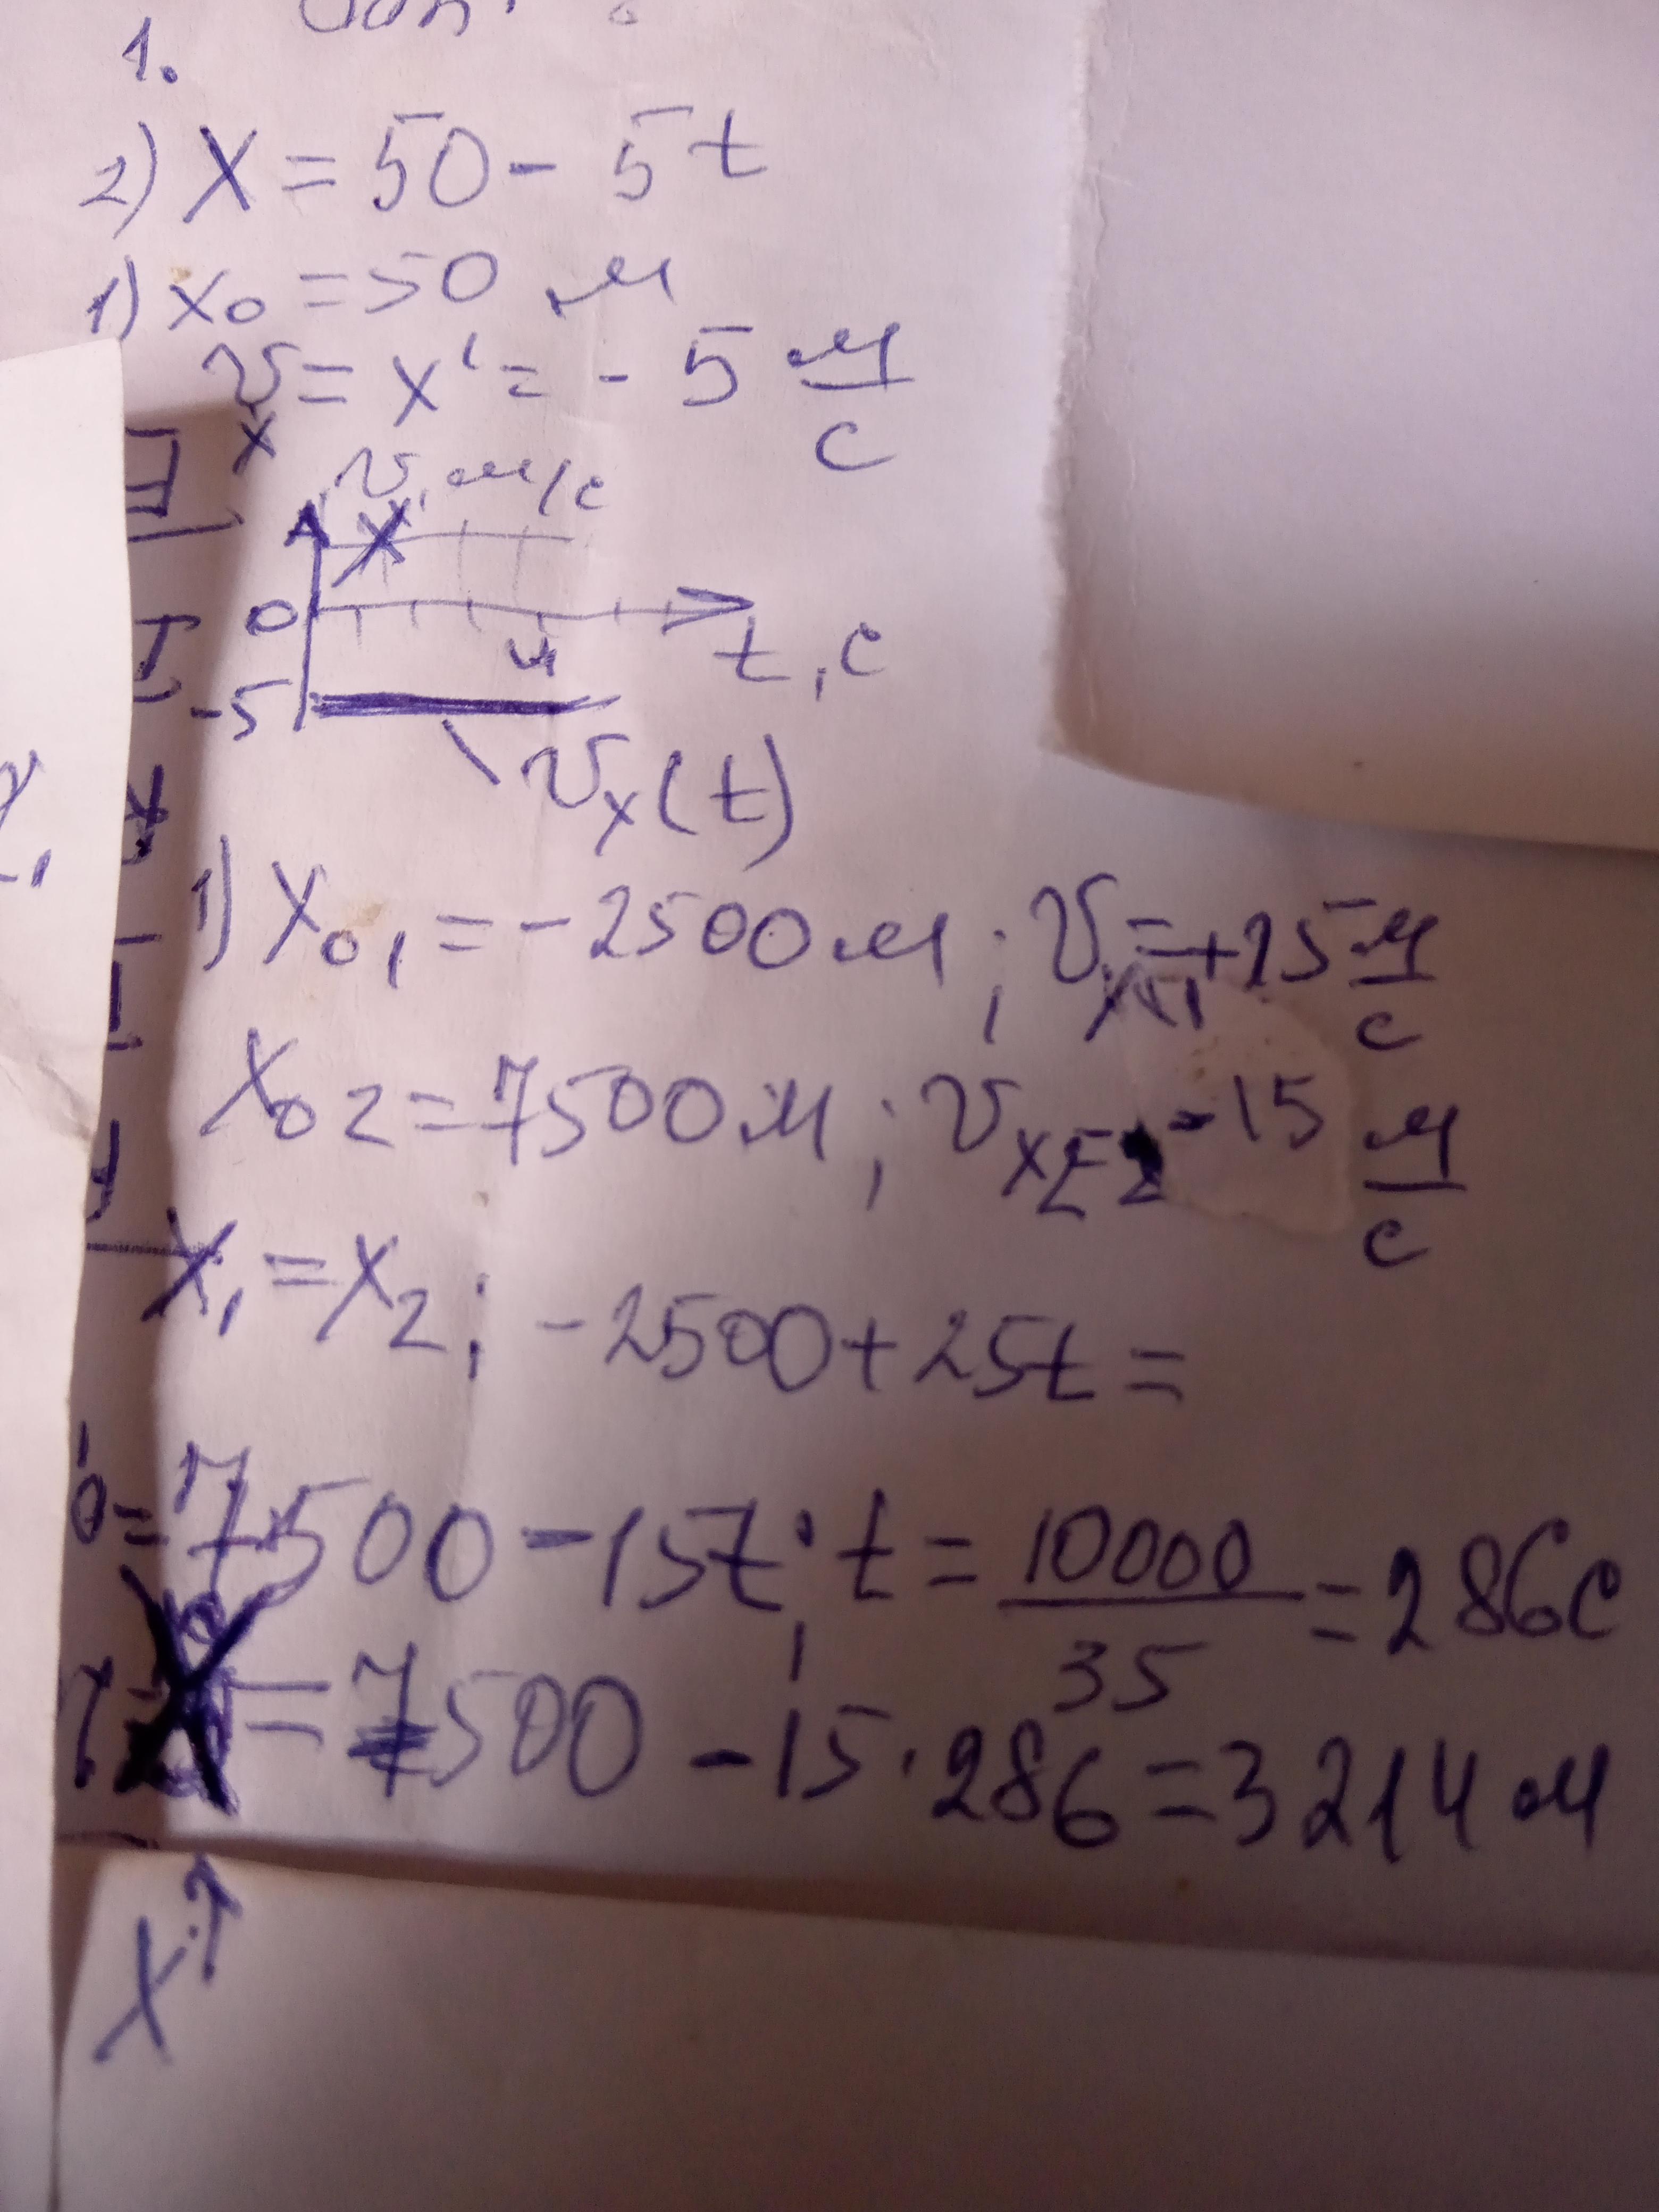 1.
2) x = 50 - 5t
1) x₀ = 50 м
v = x' = - 5 м/с
x
v, м/с
0
4
t, с
-5
vₓ(t)
1) x₀₁ = -2500 м; v = +25 м/с
x₀₂ = 7500 м; vₓ₂ = -15 м/с
x₁ = x₂; -2500 + 25t =
= 7500 - 15t; t = 10000/35 = 286 с
= 7500 - 15 · 286 = 3214 м
x